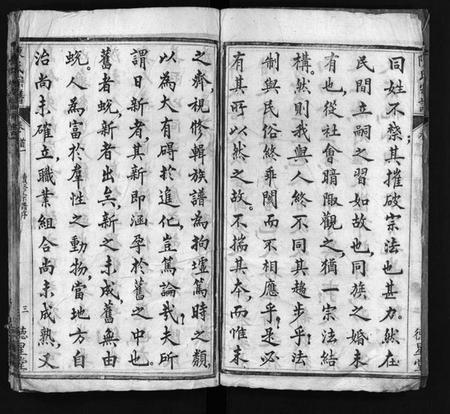 同姓不禁其摧破宗法也甚力然在
民間立嗣之習如故也同族之婚未
有也從社會暗陬觀之猶一宗法結
構然則我與人終不同其趨步乎法
制與民俗終乖闊而不相應乎是必
有其所以然之故不揣其本而惟末
之齊視修輯族譜為拘墟篤時之類
以為大有碍於進化豈篤論哉夫所
謂日新者其新即涵孕於舊之中也
舊者蛻新者出矣新之未成舊無由
蛻人為富於羣性之動物當地方自
治尚未確立職業組合尚未成熟又
三 德星堂